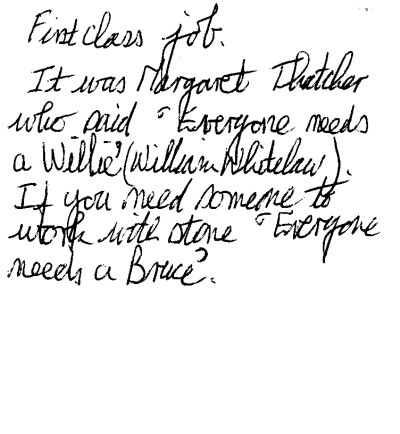 First class job.
It was Margaret Thatcher
who said "Everyone needs
a Willie" (William Whitelaw).
If you need someone to
work with stone "Everyone
needs a Bruce".